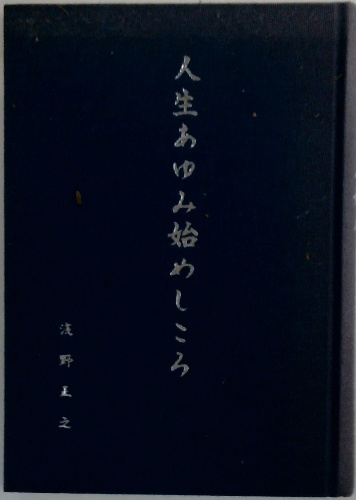 人生あゆみ始めしころ
浅野王之